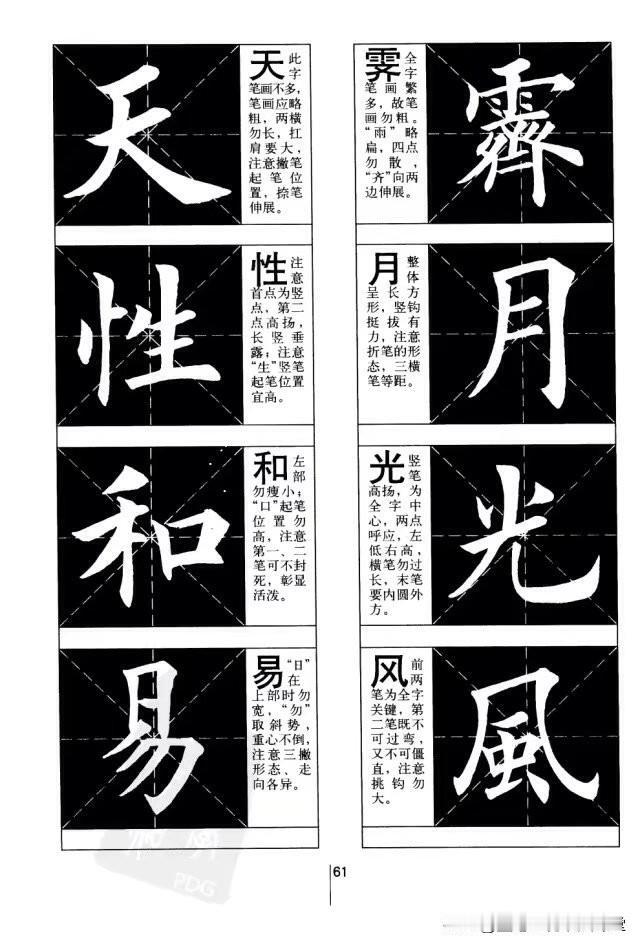 天
天 此
字
笔画不多，
笔画应略
粗，两横
勿长，扛
肩要大，
注意撇笔
起笔位
置，捺笔
伸展。
性
性 注
意
首点为竖
点，第二
点高扬，
长竖垂
露；注意
“生”竖笔
起笔位置
宜高。
和
和 左
部
勿瘦小；
“口”起笔
位置勿
高，注意
第一、二
笔可不封
死，彰显
活泼。
易
易 “日”
在
上部时勿
宽，“勿”
取斜势，
重心不倒，
注意三撇
形态、走
向各异。
霁 全
字
笔画繁
多，故笔
画勿粗。
“雨”略
扁，四点
勿散，
“齐”向两
边伸展。
霽
月 整
体
呈长方
形，竖钩
挺拔有
力，注意
折笔的形
态，三横
笔等距。
月
光 竖
笔
高扬，为
全字中
心，两点
呼应，左
低右高，
横笔勿过
长，末笔
要内圆外
方。
光
风 前
两
笔为全字
关键，第
二笔既不
可过弯，
又不可僵
直，注意
挑钩勿
大。
風
PDG
61